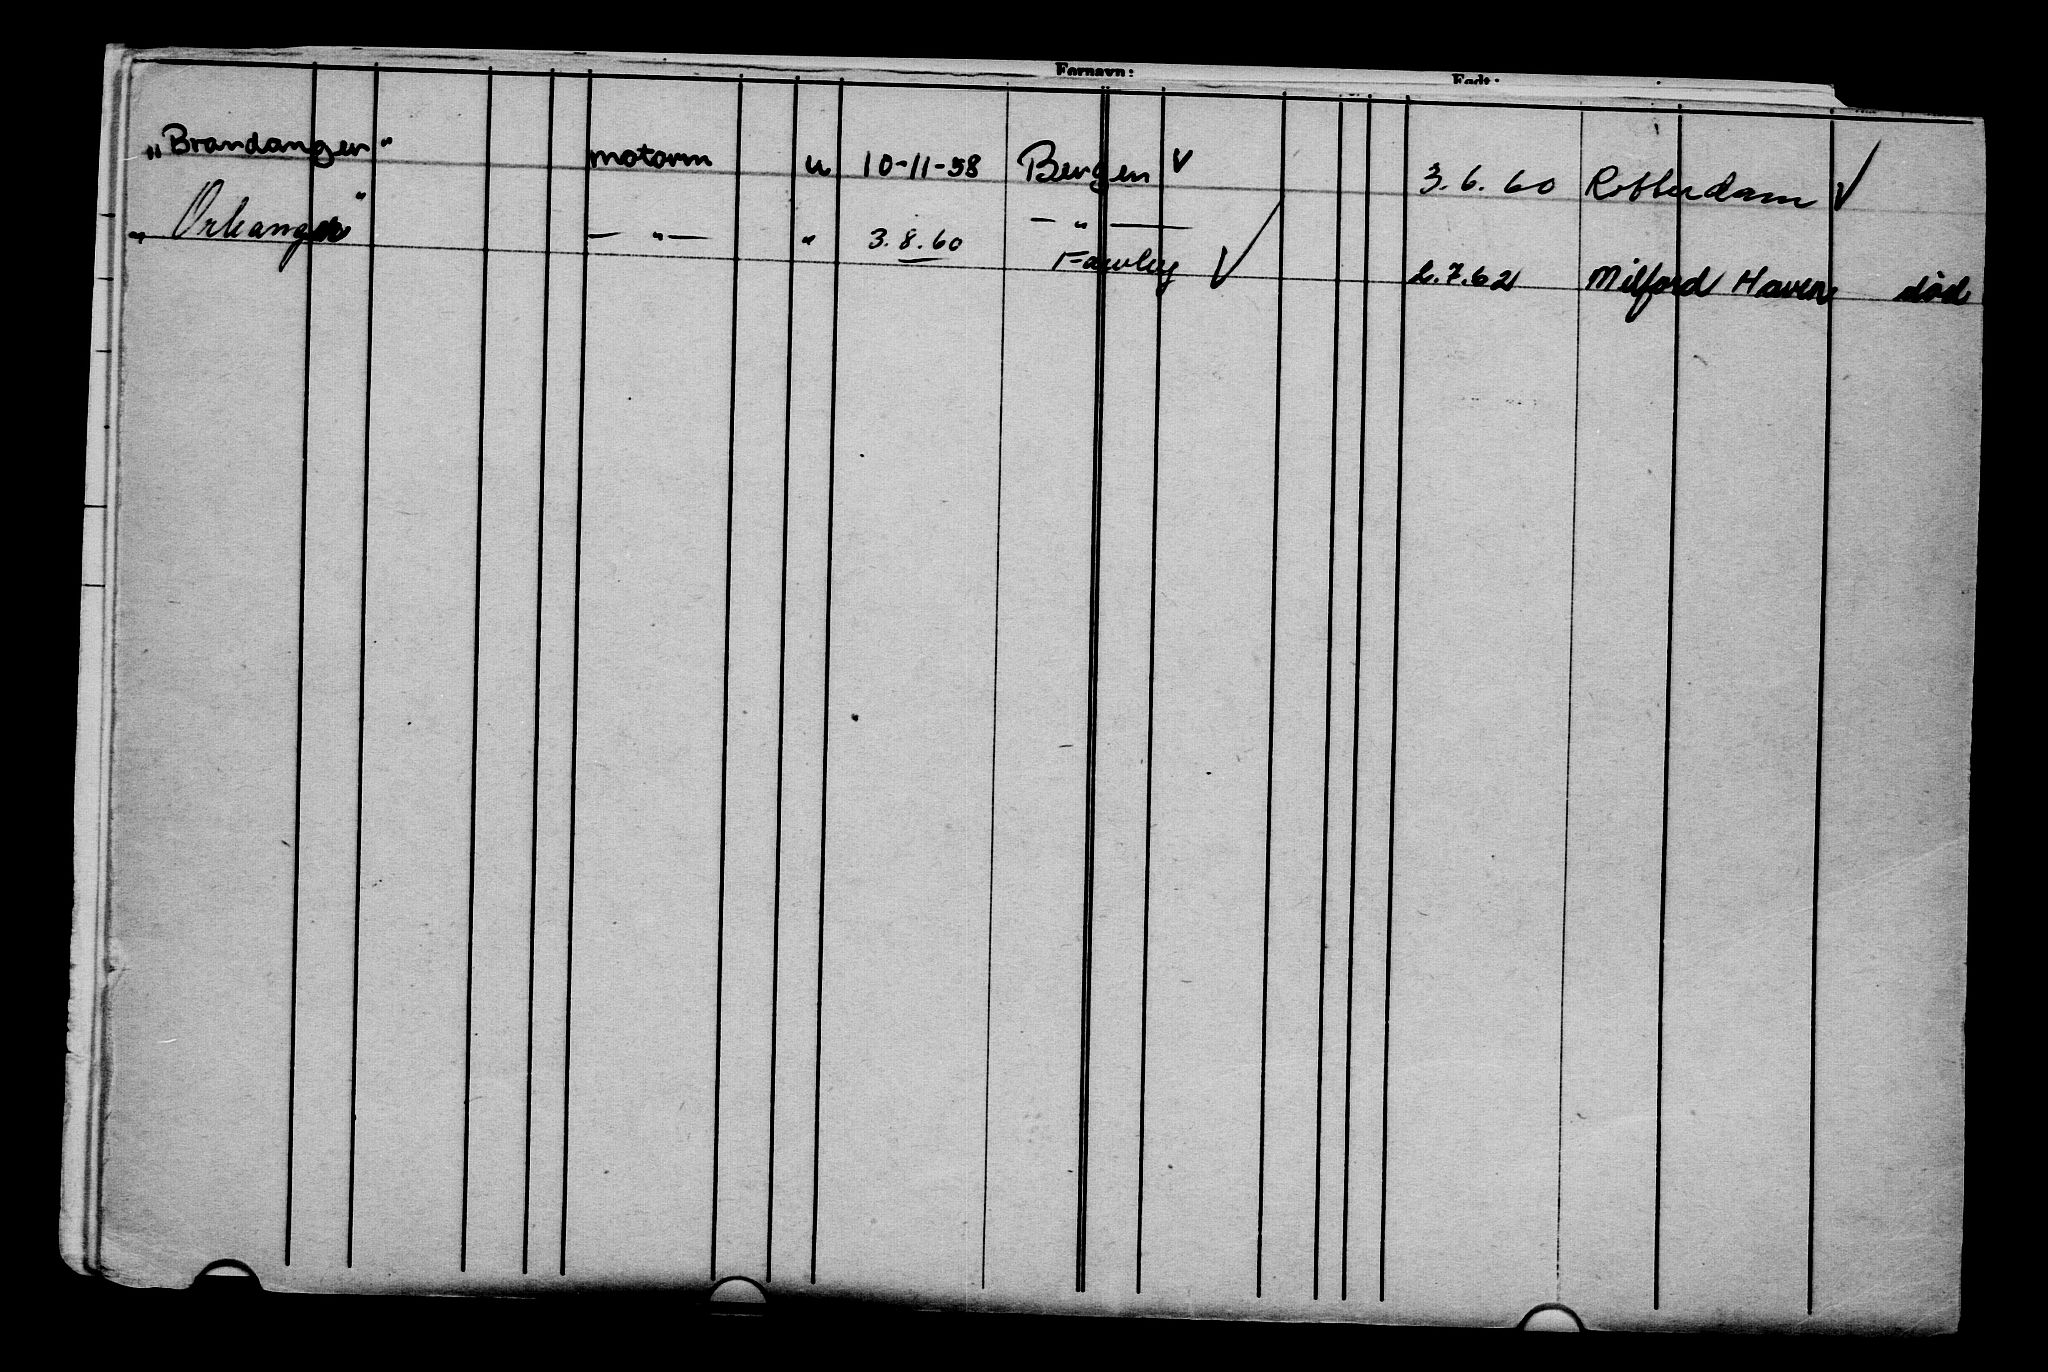 Fornavn: Født:
„Brandanger" motorm u 10-11-58 Bergen V 3. 6. 60 Rotterdam V
„Orkanger" — „ — „ 3. 8. 60 — „ —
Fawley V 2.7.62 Milford Haven død